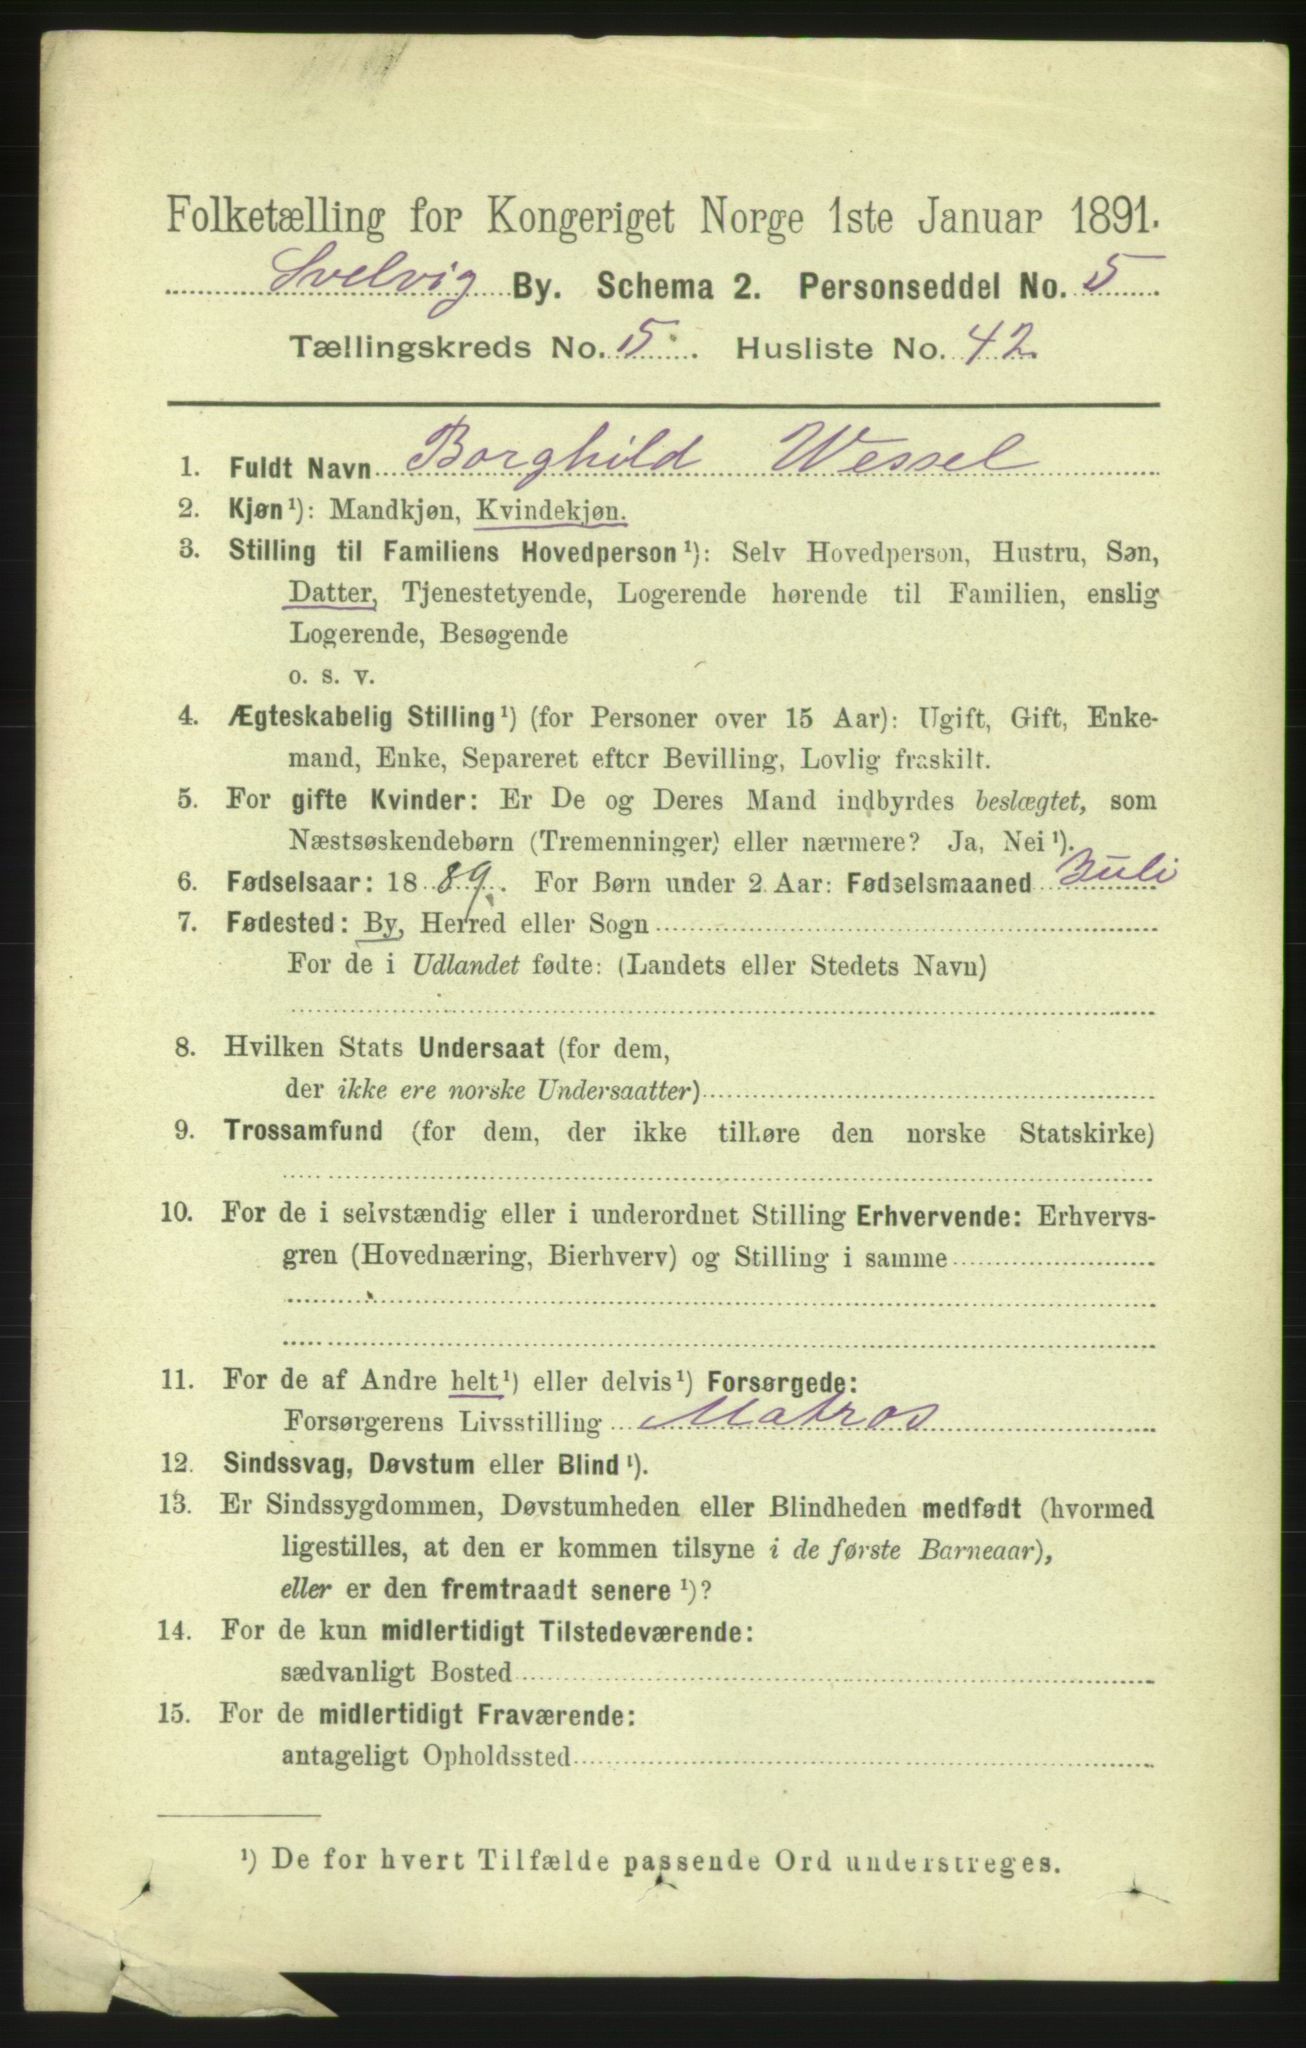 Folketælling for Kongeriget Norge 1ste Januar 1891.
Svelvig By. Schema 2. Personseddel No. 5
Tællingskreds No. 5. Husliste No. 42
1. Fuldt Navn Borghild Wessel
2. Kjøn ¹): Mandkjøn, Kvindekjøn.
3. Stilling til Familiens Hovedperson ¹): Selv Hovedperson, Hustru, Søn,
Datter, Tjenestetyende, Logerende hørende til Familien, enslig
Logerende, Besøgende
o. s. v.
4. Ægteskabelig Stilling ¹) (for Personer over 15 Aar): Ugift, Gift, Enke-
mand, Enke, Separeret efter Bevilling, Lovlig fraskilt.
5. For gifte Kvinder: Er De og Deres Mand indbyrdes beslægtet, som
Næstsøskendebørn (Tremenninger) eller nærmere? Ja, Nei ¹).
6. Fødselsaar: 1889. For Børn under 2 Aar: Fødselsmaaned Juli
7. Fødested: By, Herred eller Sogn
For de i Udlandet fødte: (Landets eller Stedets Navn)
8. Hvilken Stats Undersaat (for dem,
der ikke ere norske Undersaatter)
9. Trossamfund (for dem, der ikke tilhøre den norske Statskirke)
10. For de i selvstændig eller i underordnet Stilling Erhvervende: Erhvervs-
gren (Hovednæring, Bierhverv) og Stilling i samme
11. For de af Andre helt ¹) eller delvis ¹) Forsørgede:
Forsørgerens Livsstilling Matros
12. Sindssvag, Døvstum eller Blind ¹).
13. Er Sindssygdommen, Døvstumheden eller Blindheden medfødt (hvormed
ligestilles, at den er kommen tilsyne i de første Barneaar),
eller er den fremtraadt senere ¹)?
14. For de kun midlertidigt Tilstedeværende:
sædvanligt Bosted
15. For de midlertidigt Fraværende:
antageligt Opholdssted
¹) De for hvert Tilfælde passende Ord understreges.